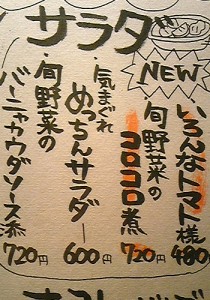 サラダ
NEW
いろんなトマト様
480
旬野菜の
コロコロ煮
720円
気まぐれ
めっちんサラダー
600円
旬野菜の
バーニャカウダソース添
720円